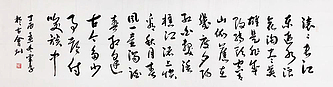 滚々长江
东逝水浪
花淘尽英
雄是非成
败转头空青
山依旧在
几度夕阳
红白发渔
樵江渚上惯
看秋月春
风一壶浊酒
喜相逢
古今多少
事都付
笑谈中